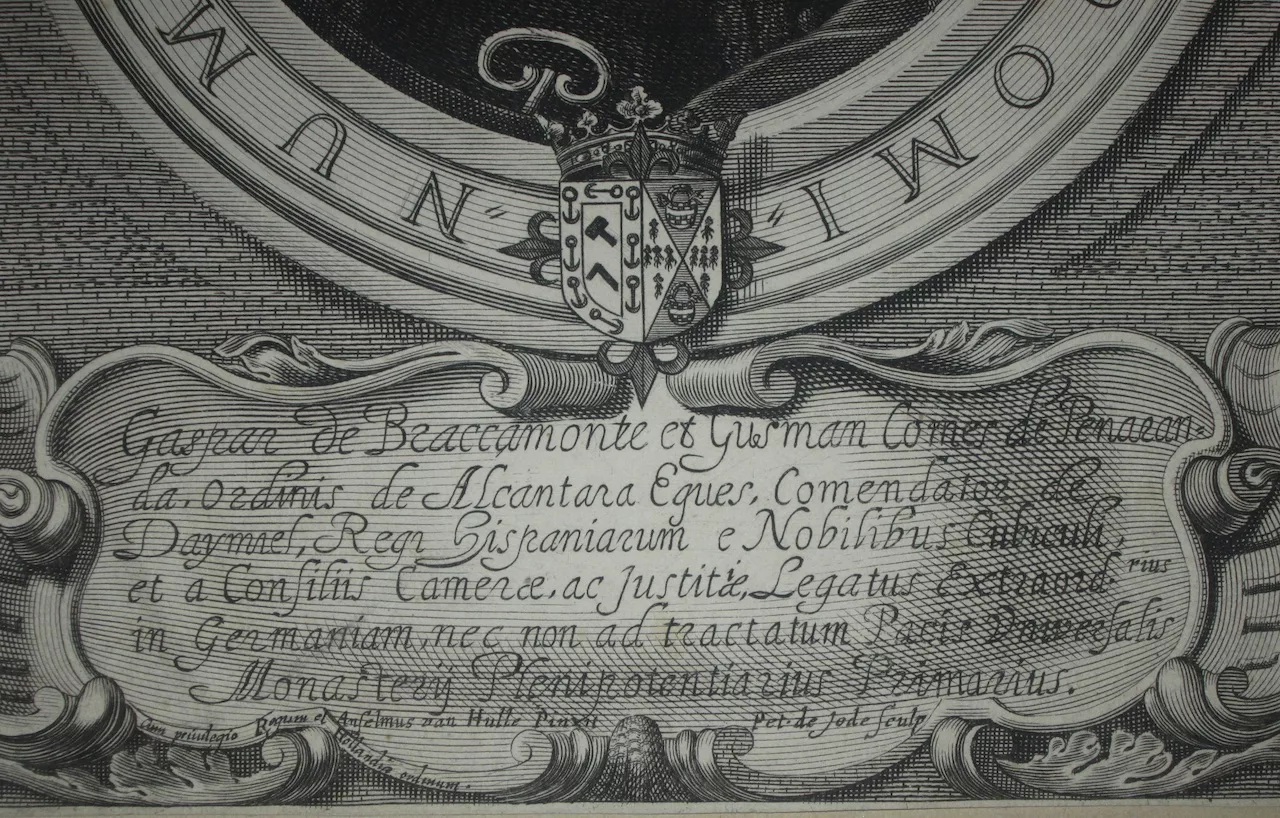 MUN〃
〃IMO
Gaspar de Braccamonte et Gusman Comes de Penaran-
da, Ordinis de Alcantara Eques, Comendator de
Daymiel, Regi Hispaniarum e Nobilibus Cubiculi,
et a Consiliis Cameræ, ac Justitiæ, Legatus Extraord.rius
in Germaniam, nec non ad tractatum Pacis Universalis
Monasterij Plenipotentiarius Primarius.
Cum privilegio Regum et Hollandiæ ordinum.
Anselmus van Hulle Pinxit
Pet. de Jode sculp